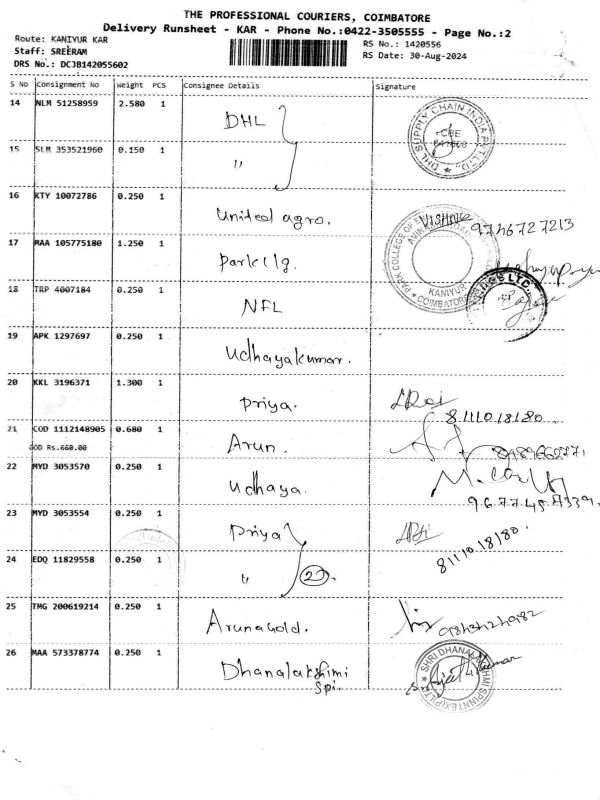 THE PROFESSIONAL COURIERS, COIMBATORE
Delivery Runsheet - KAR - Phone No.:0422-3505555 - Page No.:2
Route: KANIYUR KAR
Staff: SREERAM
DRS No.: DCJB142055602
RS No.: 1420556
RS Date: 30-Aug-2024
S No Consignment No Weight PCS Consignee Details Signature
14 NLM 51258959 2.580 1 DHL
DHL SUPPLY CHAIN INDIA PVT LTD.
15 SLM 353521960 0.150 1 "
16 KTY 10072786 0.250 1 United agro. 9746727213
17 MAA 105775180 1.250 1 Park clg.
PARK COLLEGE OF
KANIYUR
COIMBATORE
18 TRP 4007184 0.250 1 NFL
19 APK 1297697 0.250 1 Udhayakumar.
20 KKL 3196371 1.300 1 Priya. 8111018180
21 COD 1112148905 0.680 1 Arun.
COD Rs.660.00
22 MYD 3053570 0.250 1 Udhaya.
23 MYD 3053554 0.250 1 Priya 8111018180.
24 EDQ 11829558 0.250 1 " 2
25 TMG 200619214 0.250 1 Arunagold.
26 MAA 573378774 0.250 1 Dhanalakshimi
Spi.
SHRI DHANALAKSHMI SPINNTEX (P) LTD